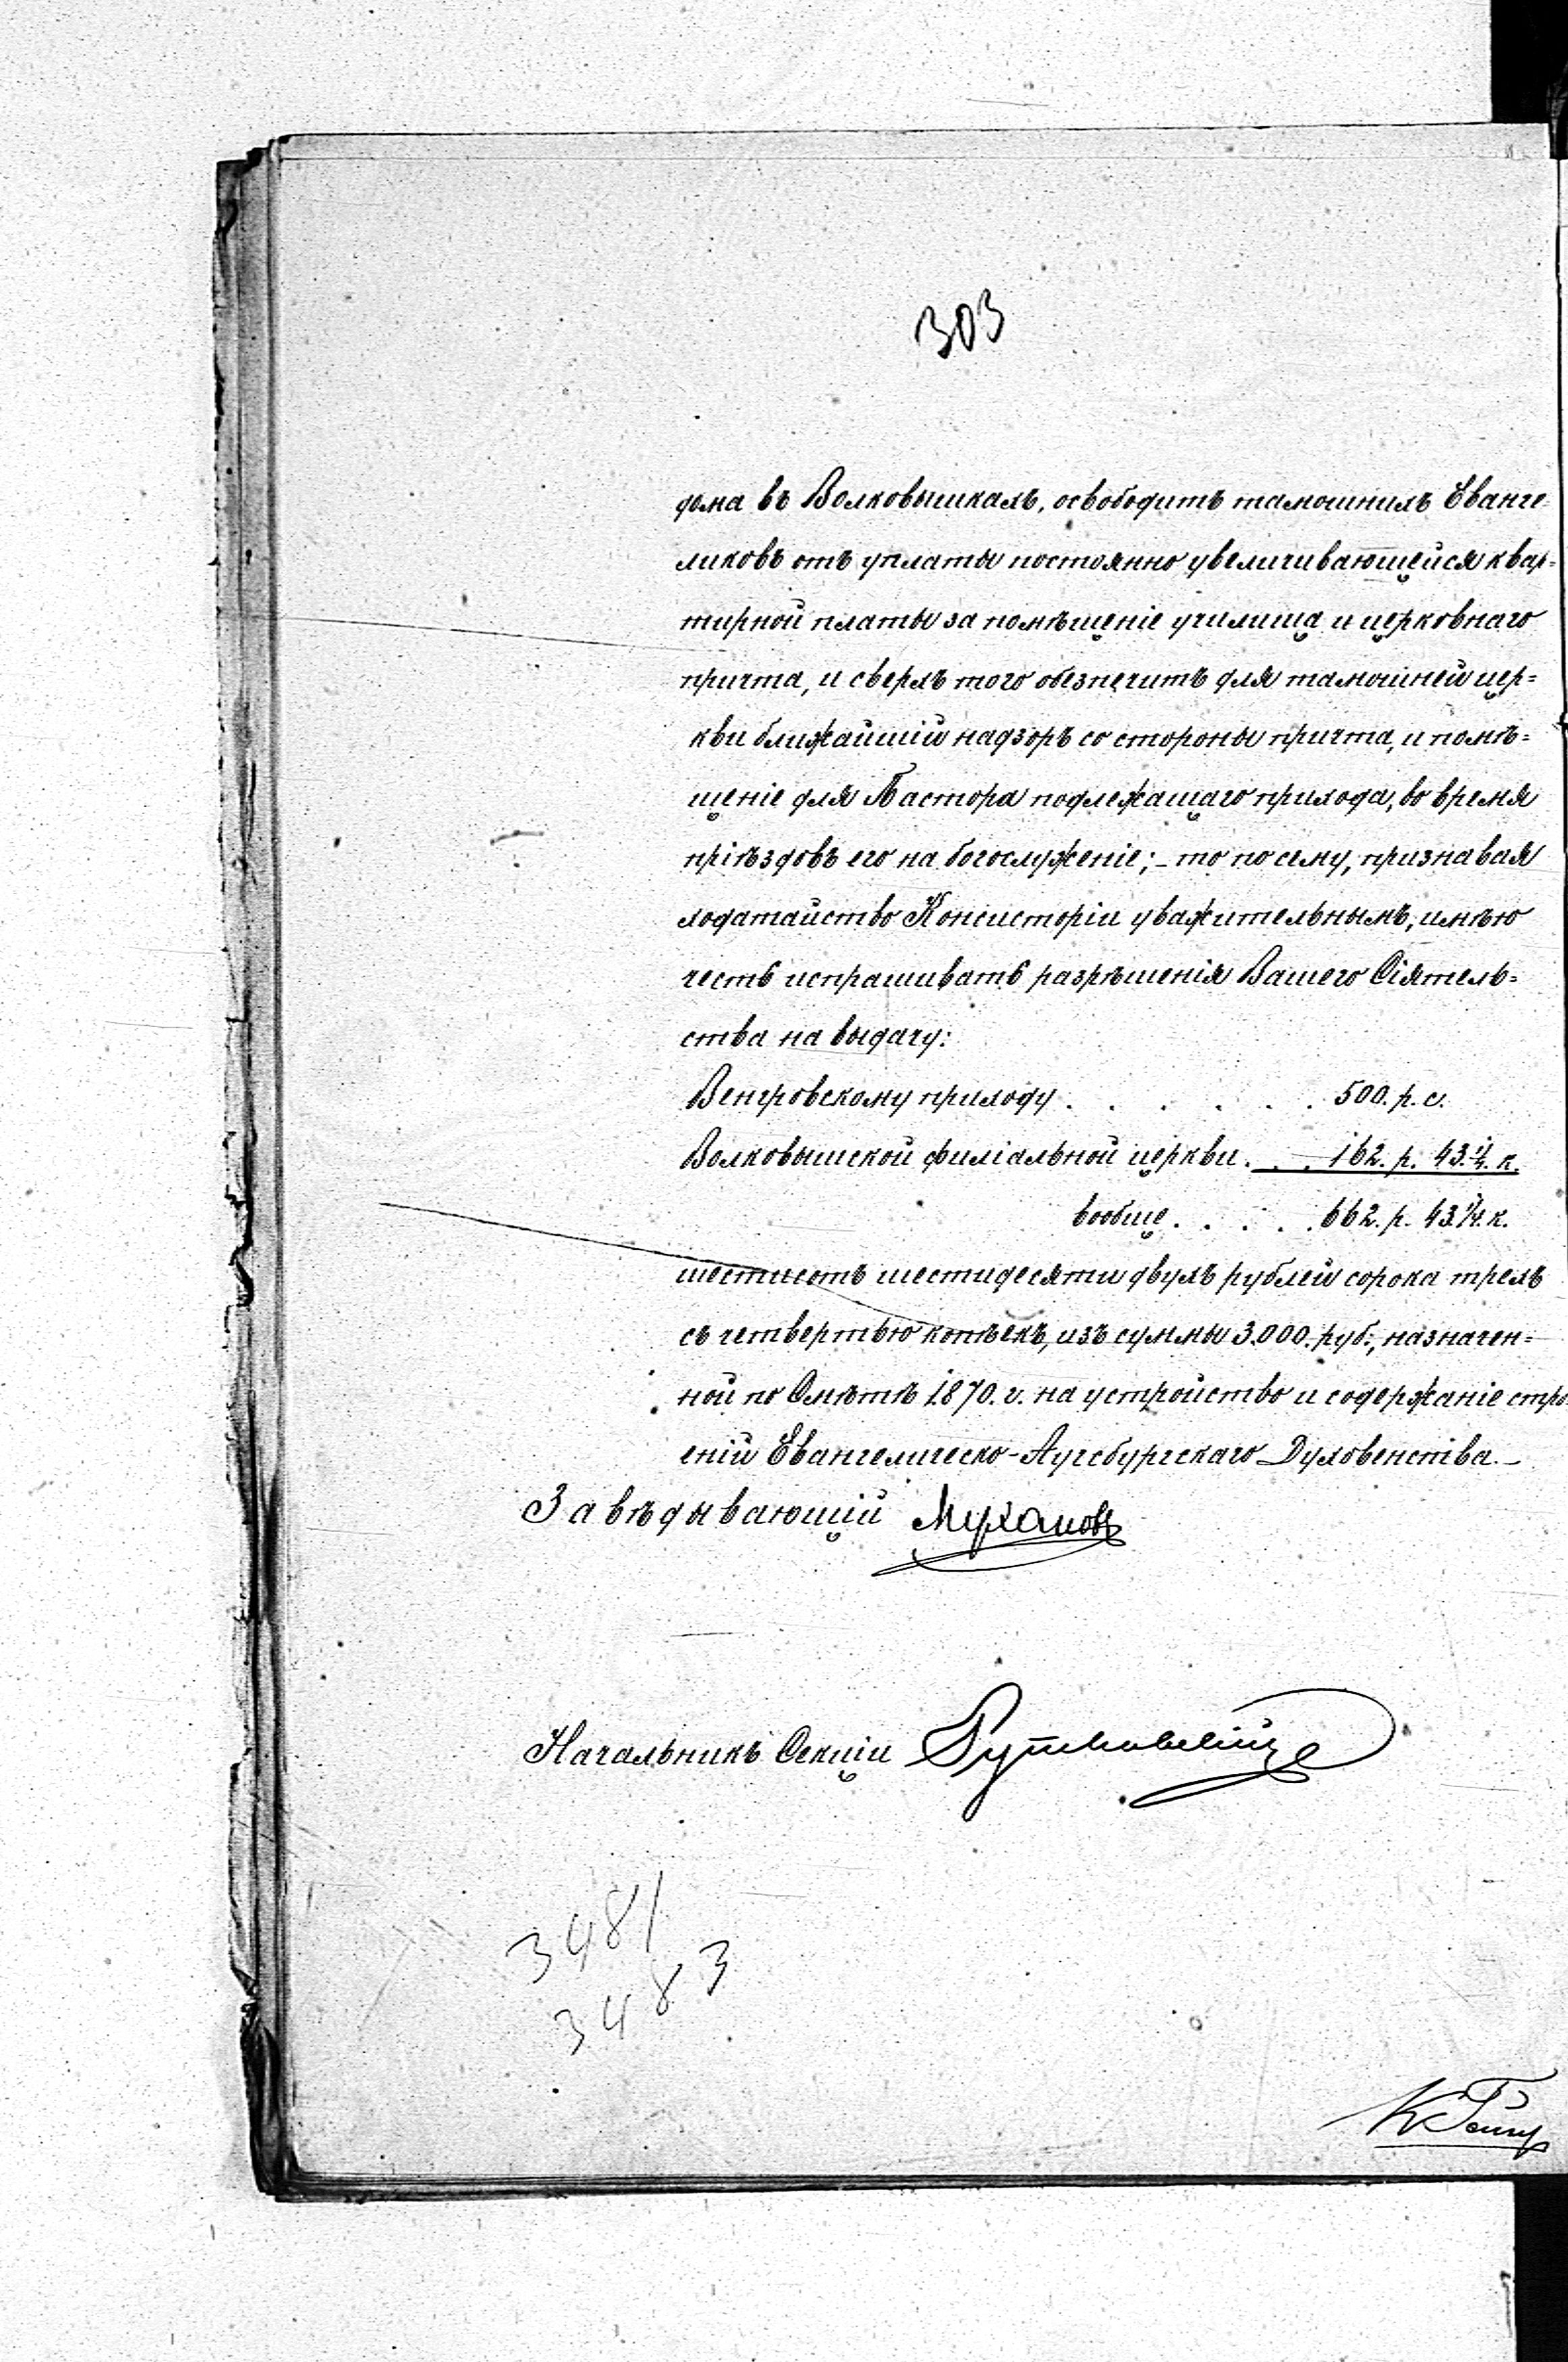 303
дома въ Волковышкахъ, освободитъ тамошнихъ Еванге-
ликовъ отъ уплаты постоянно увеличивающейся квар-
тирной платы за помѣщеніе училища и церковнаго
причта, и сверхъ того обезпечитъ для тамошней цер-
кви ближайшій надзоръ со стороны причта, и помѣ-
щеніе для Пастора подлежащаго прихода, во время
пріѣздовъ его на богослуженіе; - то по сему, признавая
ходатайство Консисторіи уважительнымъ, имѣю
честь испрашивать разрѣшенія Вашего Сіятель-
ства на выдачу:
Венгровскому приходу . . . . . . 500. р. с.
Волковышской филіальной церкви . . . 162. р. 43.¼. к.
вообще . . . . . 662. р. 43.¼. к.
шестисотъ шестидесяти двухъ рублей сорока трехъ
съ четвертью копѣекъ, изъ суммы 3.000. руб., назначен-
ной по Смѣтѣ 1870. г. на устройство и содержаніе стро-
еній Евангелическо-Аугсбургскаго Духовенства. -
Завѣдывающій Мухановъ
Начальникъ Секціи
3481
3483